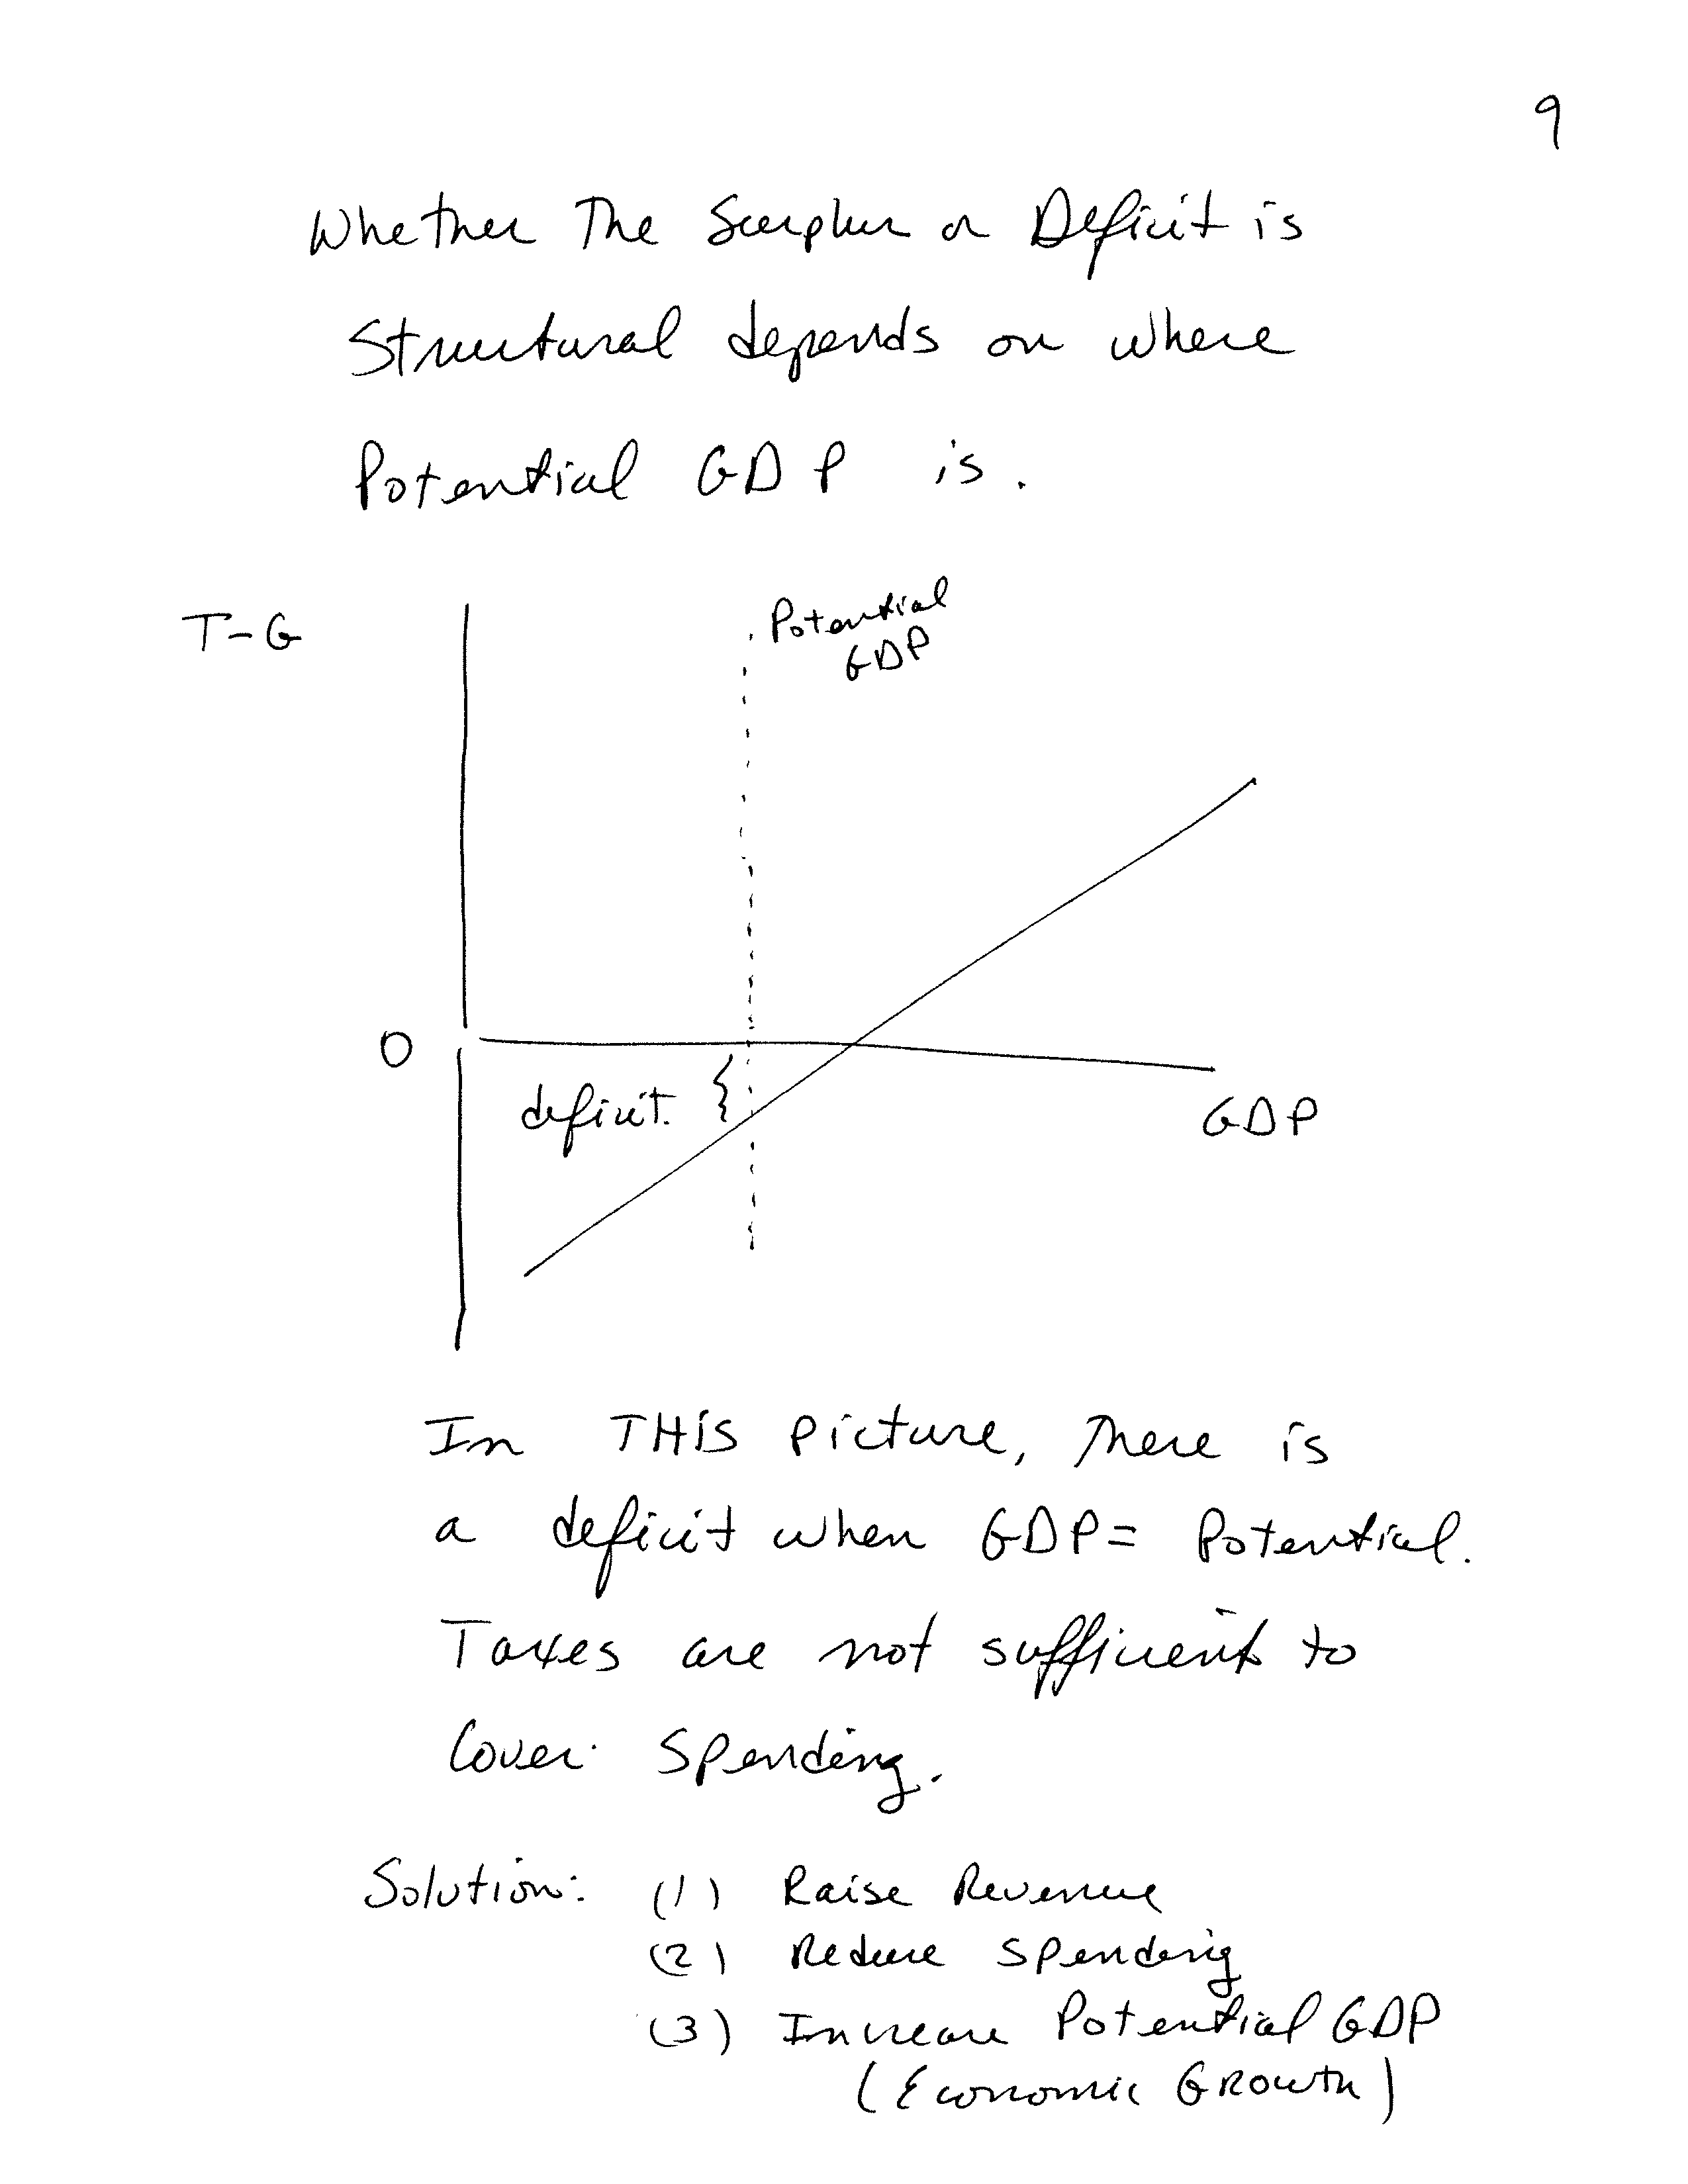 9
Whether The Surplus or Deficit is
Structural depends on where
Potential GDP is.
T-G
Potential
GDP
0
deficit.
GDP
In THIS Picture, There is
a deficit when GDP = Potential.
Taxes are not sufficient to
Cover Spending.
Solution: (1) Raise Revenue
(2) Reduce Spending
(3) Increase Potential GDP
(Economic Growth)